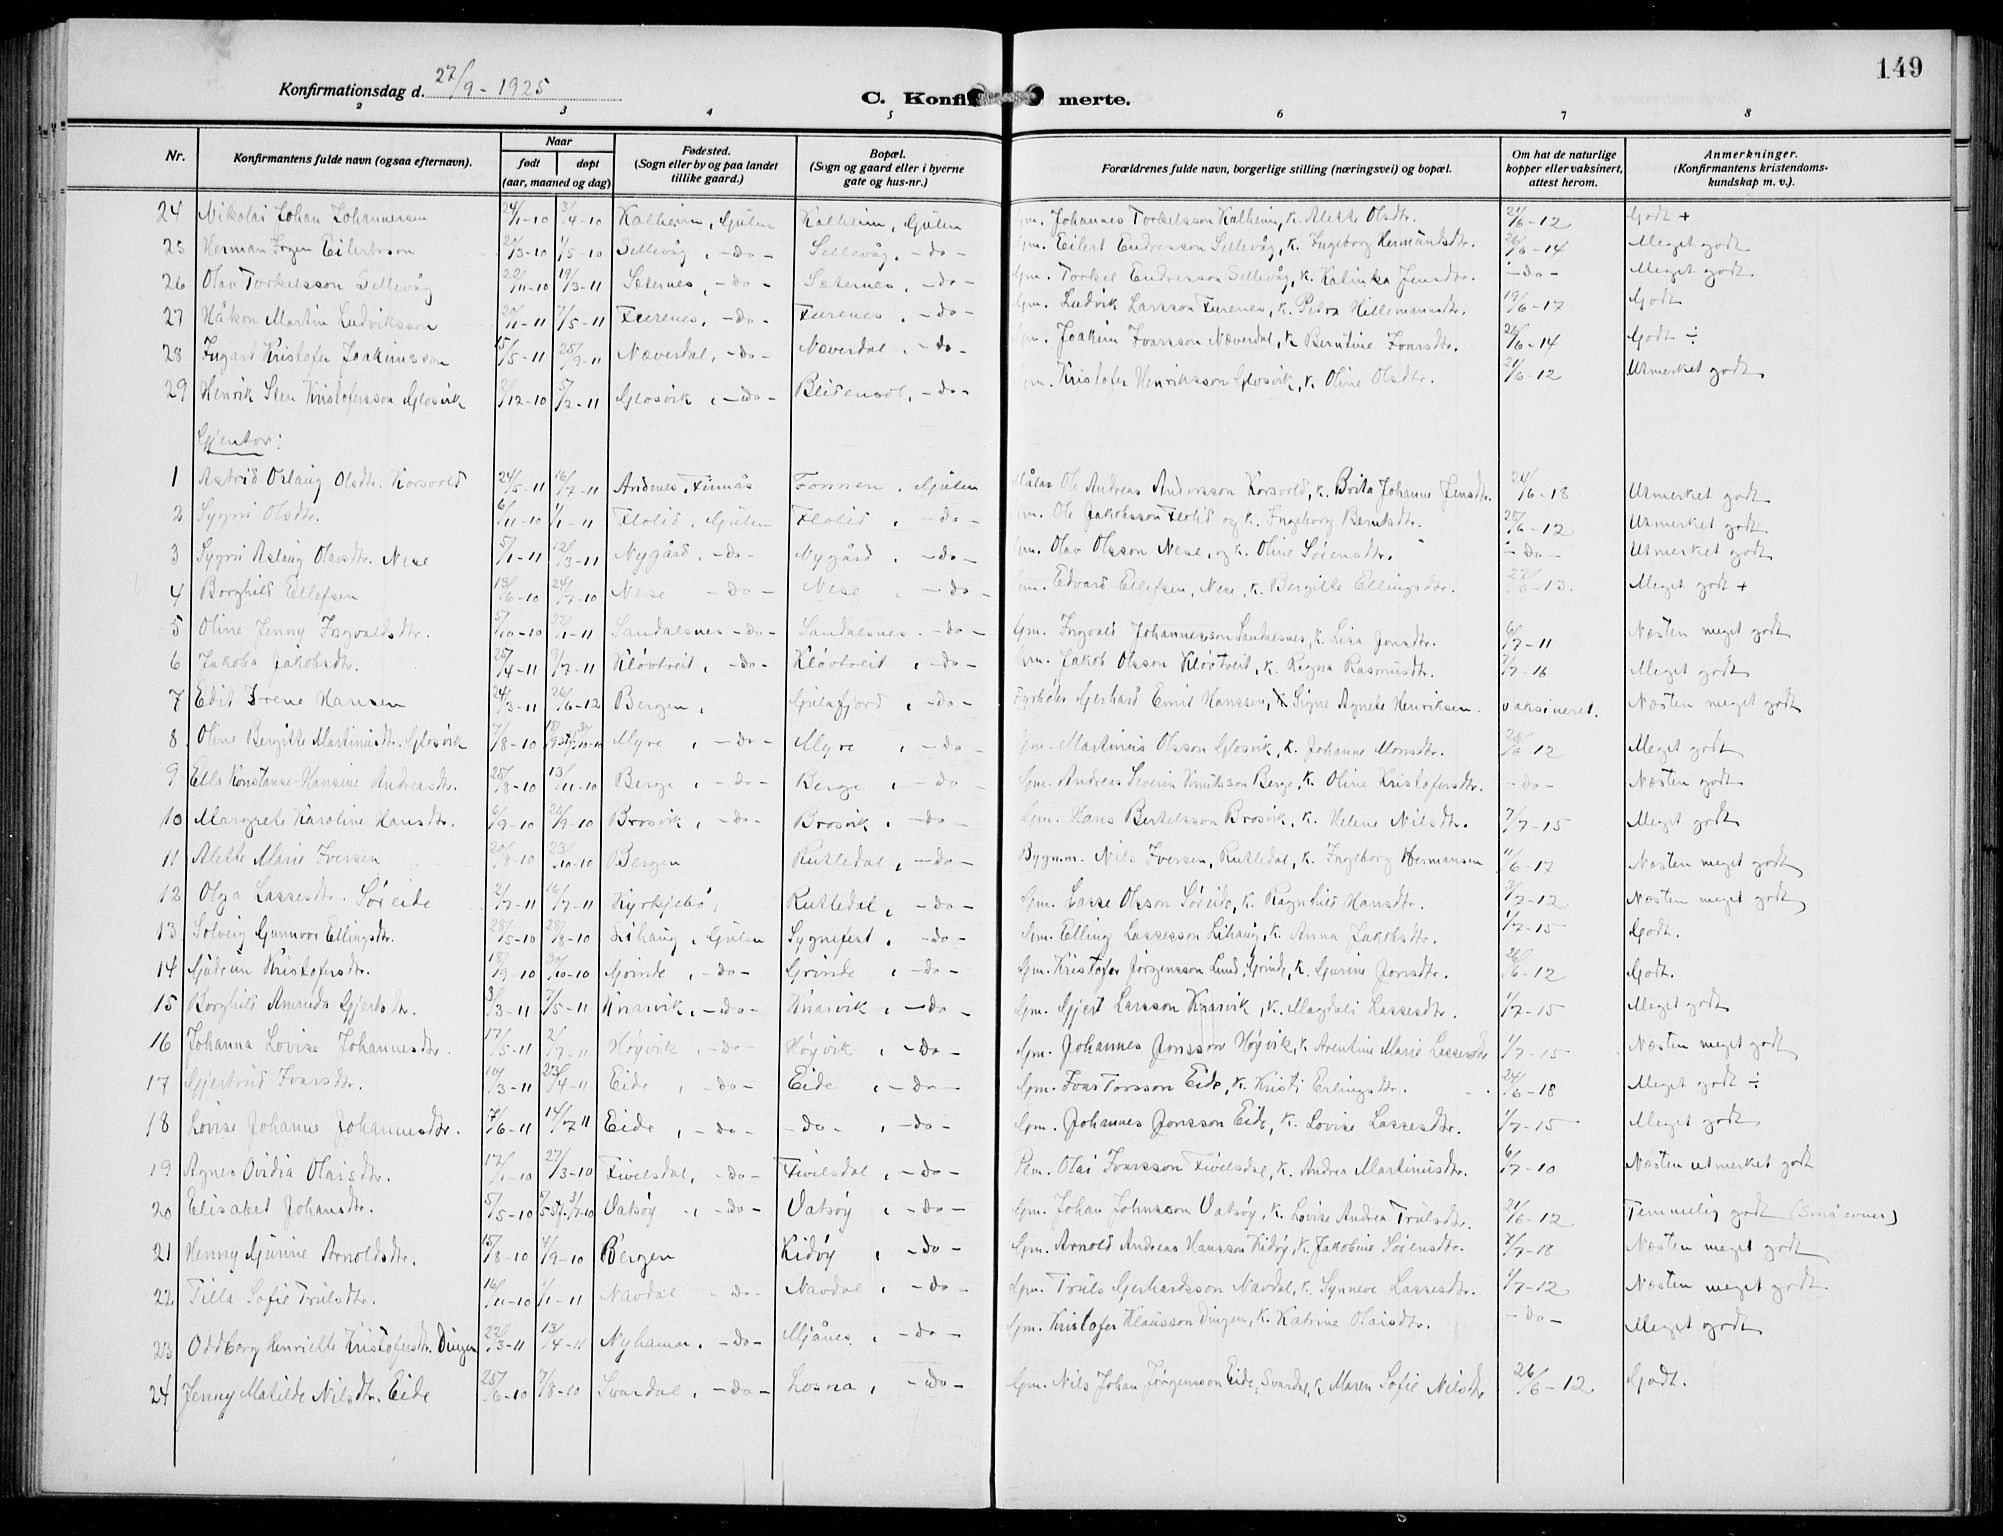 149
Konfirmationsdag d. 27/9 - 1925
C. Konfirmerte.
2 3 4 5 6 7 8
Nr. Konfirmantens fulde navn (ogsaa efternavn). Naar født døpt (aar, maaned og dag) Fødested. (Sogn eller by og paa landet tillike gaard.) Bopæl. (Sogn og gaard eller i byerne gate og hus-nr.) Forældrenes fulde navn, borgerlige stilling (næringsvei) og bopæl. Om hat de naturlige kopper eller vaksinert, attest herom. Anmerkninger. (Konfirmantens kristendoms-kundskap m. v.).
24 Nikolai Johan Johannessen 24/1-10 3/4-10 Kalheim, Gulen Kalheim, Gulen Gm. Johannes Torkelsson Kalheim, k. Alette Olsdtr. 21/6-12 Godt +
25 Herman Eilertsson 20/3-10 1/5-10 Sellevåg, -do- Sellevåg, -do- Gm. Eilert Endresson Sellevåg, k. Ingeborg Hermundsdtr. 26/6-14 Meget godt
26 Olav Torkelsson Sellevåg 22/11-10 19/3-11 Sæternes, -do- Sæternes, -do- Gm. Torkel Endresson Sellevåg, k. Katinka Jensdtr. -do- Meget godt
27 Håkon Martin Ludviksson 20/11-11 7/5-11 Furenes, -do- Furenes, -do- Gm. Ludvik Larsson Furenes, k. Petra Hillemannsdtr. 19/6-17 Godt
28 Ingart Kristofer Joakimsson 15/5-11 25/9-11 Næverdal, -do- Næverdal, -do- Gm. Joakim Ivarsson Næverdal, k. Berntine Ivarsdtr. 26/6-14 Godt ÷
29 Henrik Sten Kristofersson Glosvik 2/12-10 5/2-11 Glosvik, -do- -do- Gm. Kristofer Henriksson Glosvik, k. Oline Olsdtr. 21/6-12 Utmerket godt
Gjentor:
1 Astrid Oslaug Olsdtr. Korsvold 24/5-11 16/7-11 Andenes, Finnås Fonnen, Gulen Målar Ole Andreas Andersson Korsvold, k. Brita Johanne Jensdtr. 24/6-18 Utmerket godt
2 Sygni Olsdtr. 6/11-10 1/1-11 Flolid, Gulen Flolid, -do- Gm. Ole Jakobsson Flolid og k. Ingeborg Berntsdtr. 20/6-12 Utmerket godt
3 Sygni Aslaug Olavsdtr. Nese 5/1-11 12/3-11 Nygård, -do- Nygård, -do- Gm. Olav Olsson Nese, og k. Oline Sørensdtr. -do- Utmerket godt
4 Borghild Ellefsen 13/6-10 24/7-10 Nese -do- Nese, -do- Gm. Edvard Ellefsen, Nese, k. Bergitte Ellingsdtr. 27/6-13. Meget godt +
5 Oline Jenny Ingvaldsdtr. 5/10-10 22/1-11 Sandalsnes -do- Sandalsnes, -do- Gm. Ingvald Johannesson Sandalsnes, k. Lisa Jonsdtr. 6/7-11 Næsten meget godt
6 Jakoba Jakobsdtr. 25/4-11 9/7-11 Kløvtveit, -do- Kløvtveit, -do- Gm. Jakob Olsson Kløvtveit, k. Ragna Rasmusdtr. 7/7-16 Meget godt
7 Edit Irene Hansen 24/3-11 26/6-12 Bergen, Gulafjord, -do- Fyrbøter Gerhard Emil Hanssen, k. Signe Agnete Henriksen. vaksineret. Næsten meget godt
8 Oline Bergitte Martinusdtr. Glosvik 7/8-10 Myre, -do- Myre, -do- Gm. Martinus Olsson Glosvik, k. Johanne Monsdtr. 20/6-12 Meget godt
9 Ella Konstanse Hansine Andreasdtr. 25/8-10 13/11-10 Berge, -do- Berge, -do- Gm. Andreas Severin Knutsson Berge, k. Oline Kristofersdtr. -do- Næsten godt
10 Margrete Karoline Hansdtr. 6/9-10 26/9-10 Brosvik, -do- Brosvik, -do- Gm. Hans Bertelsson Brosvik, k. Helene Nilsdtr. 7/7-15 Meget godt
11 Alette Marie Iversen 20/8-10 23/10-10 Bergen Rutledal, -do- Bygnm. Nils Iversen, Rutledal, k. Ingeborg Hermansen 11/6-17 Næsten meget godt
12 Olga Lassesdtr. Søreide 2/7-11 16/7-11 Kyrkjebø, Rutledal, -do- Gm. Lasse Olsson Søreide, k. Ragnhild Hansdtr. 2/7-12 Næsten meget godt
13 Solveig Gunnvor Ellingsdtr. 28/5-10 28/8-10 Lihaug, Gulen Sygnefest, -do- Gm. Elling Lassesson Lihaug, k. Anna Jakobsdtr. 1/7-15 Godt.
14 Gudrun Kristofersdtr. 18/9-10 30/10-10 Grinde, -do- Grinde, -do- Gm. Kristofer Jørgensson Lund, Grinde, k. Gurine Jonsdtr. 26/6-12 Godt.
15 Borghild Amanda Gjertsdtr. 3/3-11 7/5-11 Knarvik, -do- Knarvik, -do- Gm. Gjert Larsson Knarvik, k. Magdali Lassesdtr. 1/7-15 Meget godt
16 Johanna Lovise Johannesdtr. 17/5-11 2/7-11 Høyvik, -do- Høyvik, -do- Gm. Johannes Jonsson Høyvik, k. Arentine Marie Lassesdtr 1/7-15 Næsten meget godt
17 Gjertrud Ivarsdtr. 10/3-11 23/4-11 Eide, -do- Eide, -do- Gm. Ivar Torsson Eide, k. Kristi Erlingsdtr. 24/6-18 Meget godt ÷
18 Lovise Johanne Johannesdtr. 7/6-11 14/7 11 Eide, -do- -do-, -do- Gm. Johannes Jonsson Eide, k. Lovise Lassesdtr. 1/7-15 Meget godt
19 Agnes Ovidia Olaisdtr. 17/1-10 27/3-10 Fivelsdal, -do- Fivelsdal, -do- Pm. Olai Ivarsson Fivelsdal, k. Andrea Martinusdtr. 6/7-10 Næsten utmerket godt
20 Elisabet Johansdtr. 5/5-10 Vatsøy, -do- Vatsøy, -do- Gm. Johan Johnsson Vatsøy, k. Lovise Andrea Trulsdtr. 21/6-12 Temmelig godt (små evner)
21 Henny Gurine Arnoldsdtr. 15/8-10 4/9-10 Bergen Kidøy, -do- Gm. Arnold Andreas Hansson Kidøy, k. Jakobine Sørensdtr. 7/7-18 Næsten meget godt
22 Tilla Sofie Trulsdtr. 16/11-10 1/1-11 Navdal -do- Navdal, -do- Gm. Truls Gerhardsson Navdal, k. Synneve Lassesdtr. 1/7-12 Næsten meget godt
23 Oddborg Henriette Kristofersdtr. Dingen 22/3-11 13/4-11 Nyhamar, -do- Mjånes, -do- Gm. Kristofer Klausson Dingen, k. Katrine Olaisdtr. -do- Meget godt
24 Jenny Matilde Nilsdtr. Eide 25/6-10 7/8-10 Svardal, -do- Losna, -do- Gm. Nils Johan Jørgensson Eide, Svardal, k. Maren Sofie Nilsdtr 26/6-12 Godt.